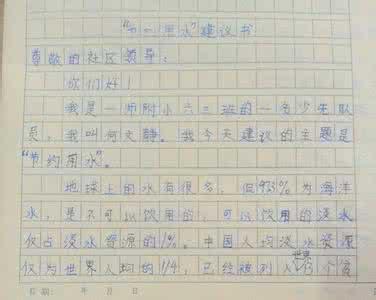 "节约用水"建议书
尊敬的社区领导：
你们好！
我是一师附小六三班的一名少先队
员，我叫何文静。我今天建议的主题是
"节约用水"。
地球上的水有很多，但97.5%为海洋
水，是不可以饮用的，可以饮用的淡水
仅占淡水资源的1%。中国人均淡水资源
仅为世界人均的1/4，已经被列入世界13个贫
日期：　年　月　日